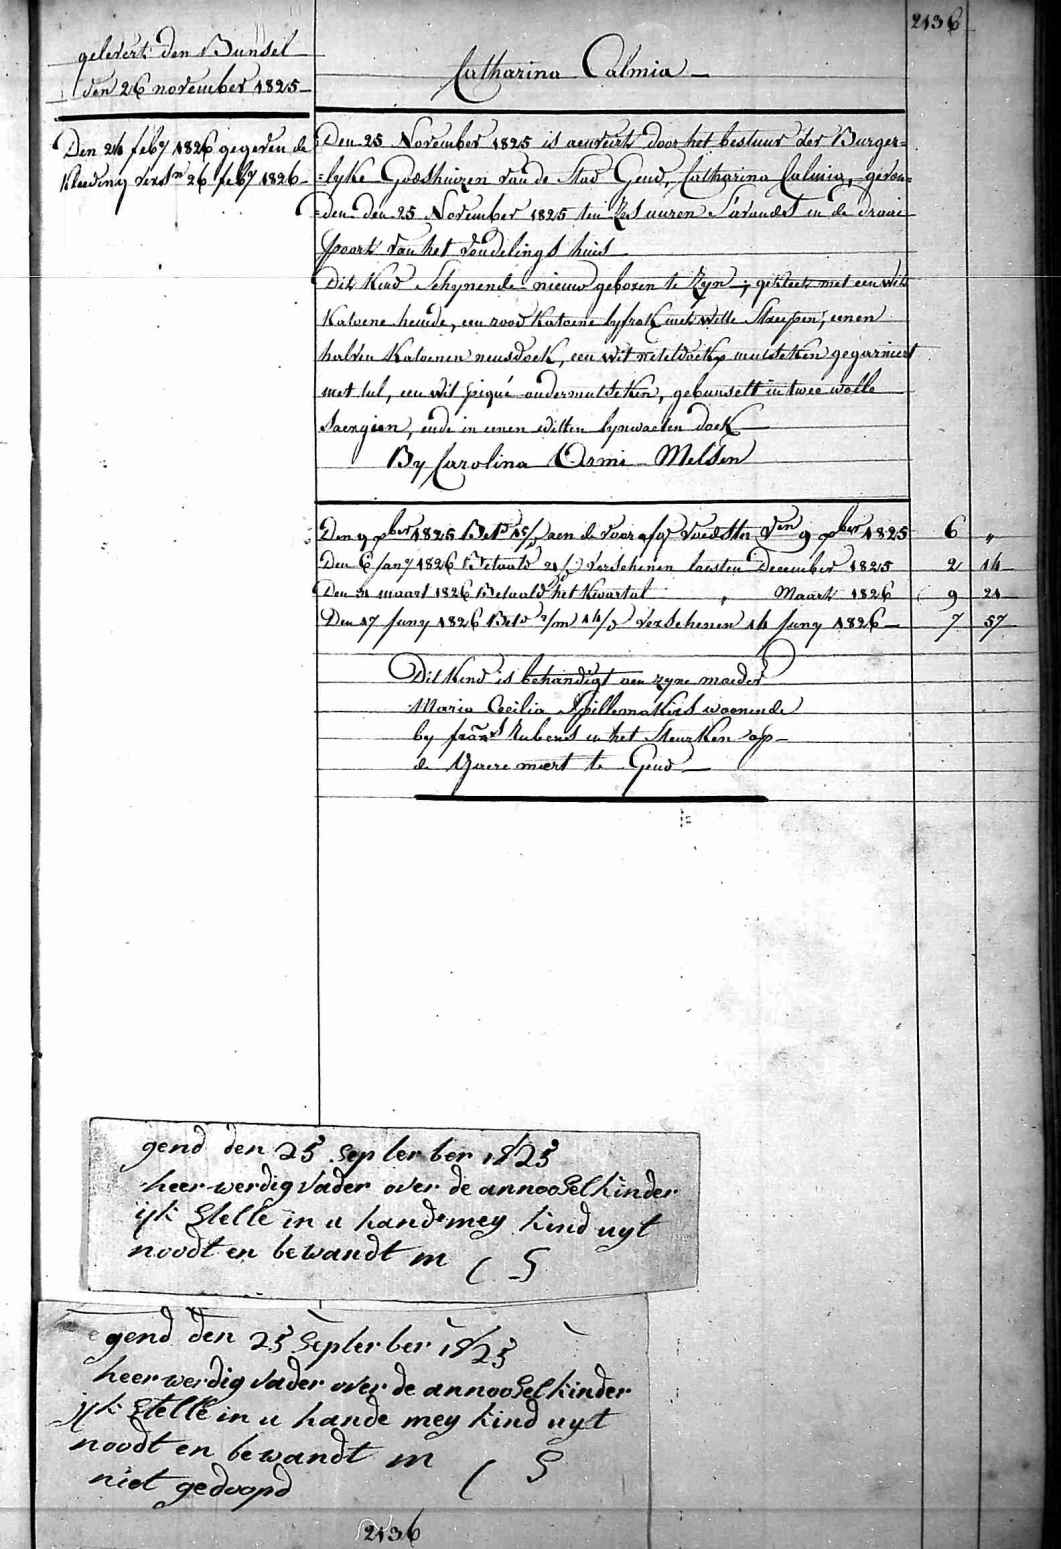 2136
gelevert den Bunsel
den 26 november 1825
Catharina Calmia
Den 24 feby 1826 gegeven de
kleeding versn 26 feby 1826
Den 25 November 1825 is aenveirt door het bestuur der Burger=
=lyke Godshuizen van de Stad Gend, Catharina Calmia, gevon=
=den den 25 November 1825 ten zes uuren S'avonds in de draai
poort van het vondelings huis
Dit kind Schynende nieuw geboren te zyn, gekleet met een wit
katoene hemde, een rood katoene lyfrok met witte Streepen, eenen
halven katoenen neusdoek, een wit neteldoek mutseken gegarniert
met tul, een wit piqué ondermutseken, gebunselt in twee wolle
Saengien, ende in eenen witten lynwaeten doek
By Carolina Osmi Melsen
Den 9 xber 1825 Bet aen de voor voedster den 9 xber 1825 6 "
Den 6 jany 1826 Betaald 21/ verschenen laesten December 1825 2 14
Den 31 maart 1826 Betaald het kwartal " Maart 1826 9 21
Den 17 juny 1826 Betd 2/m 14/d verschenen 14 juny 1826 7 57
Dit kind is behandigt aen zyne moeder
Maria Cecilia Spillemakers woonende
by frans Rubens in het Steurken op
de Garre mert te Gend
gend den 25 Septerber 1825
heer werdig vader over de annooselkinder
ijk Stelle in u hande mey kind uyt
noodt en bewandt m ( S
gend den 25 Septerber 1825
heer werdig vader over de annooselkinder
ijk Stelle in u hande mey kind uyt
noodt en bewandt m ( S
niet gedoopd
2136